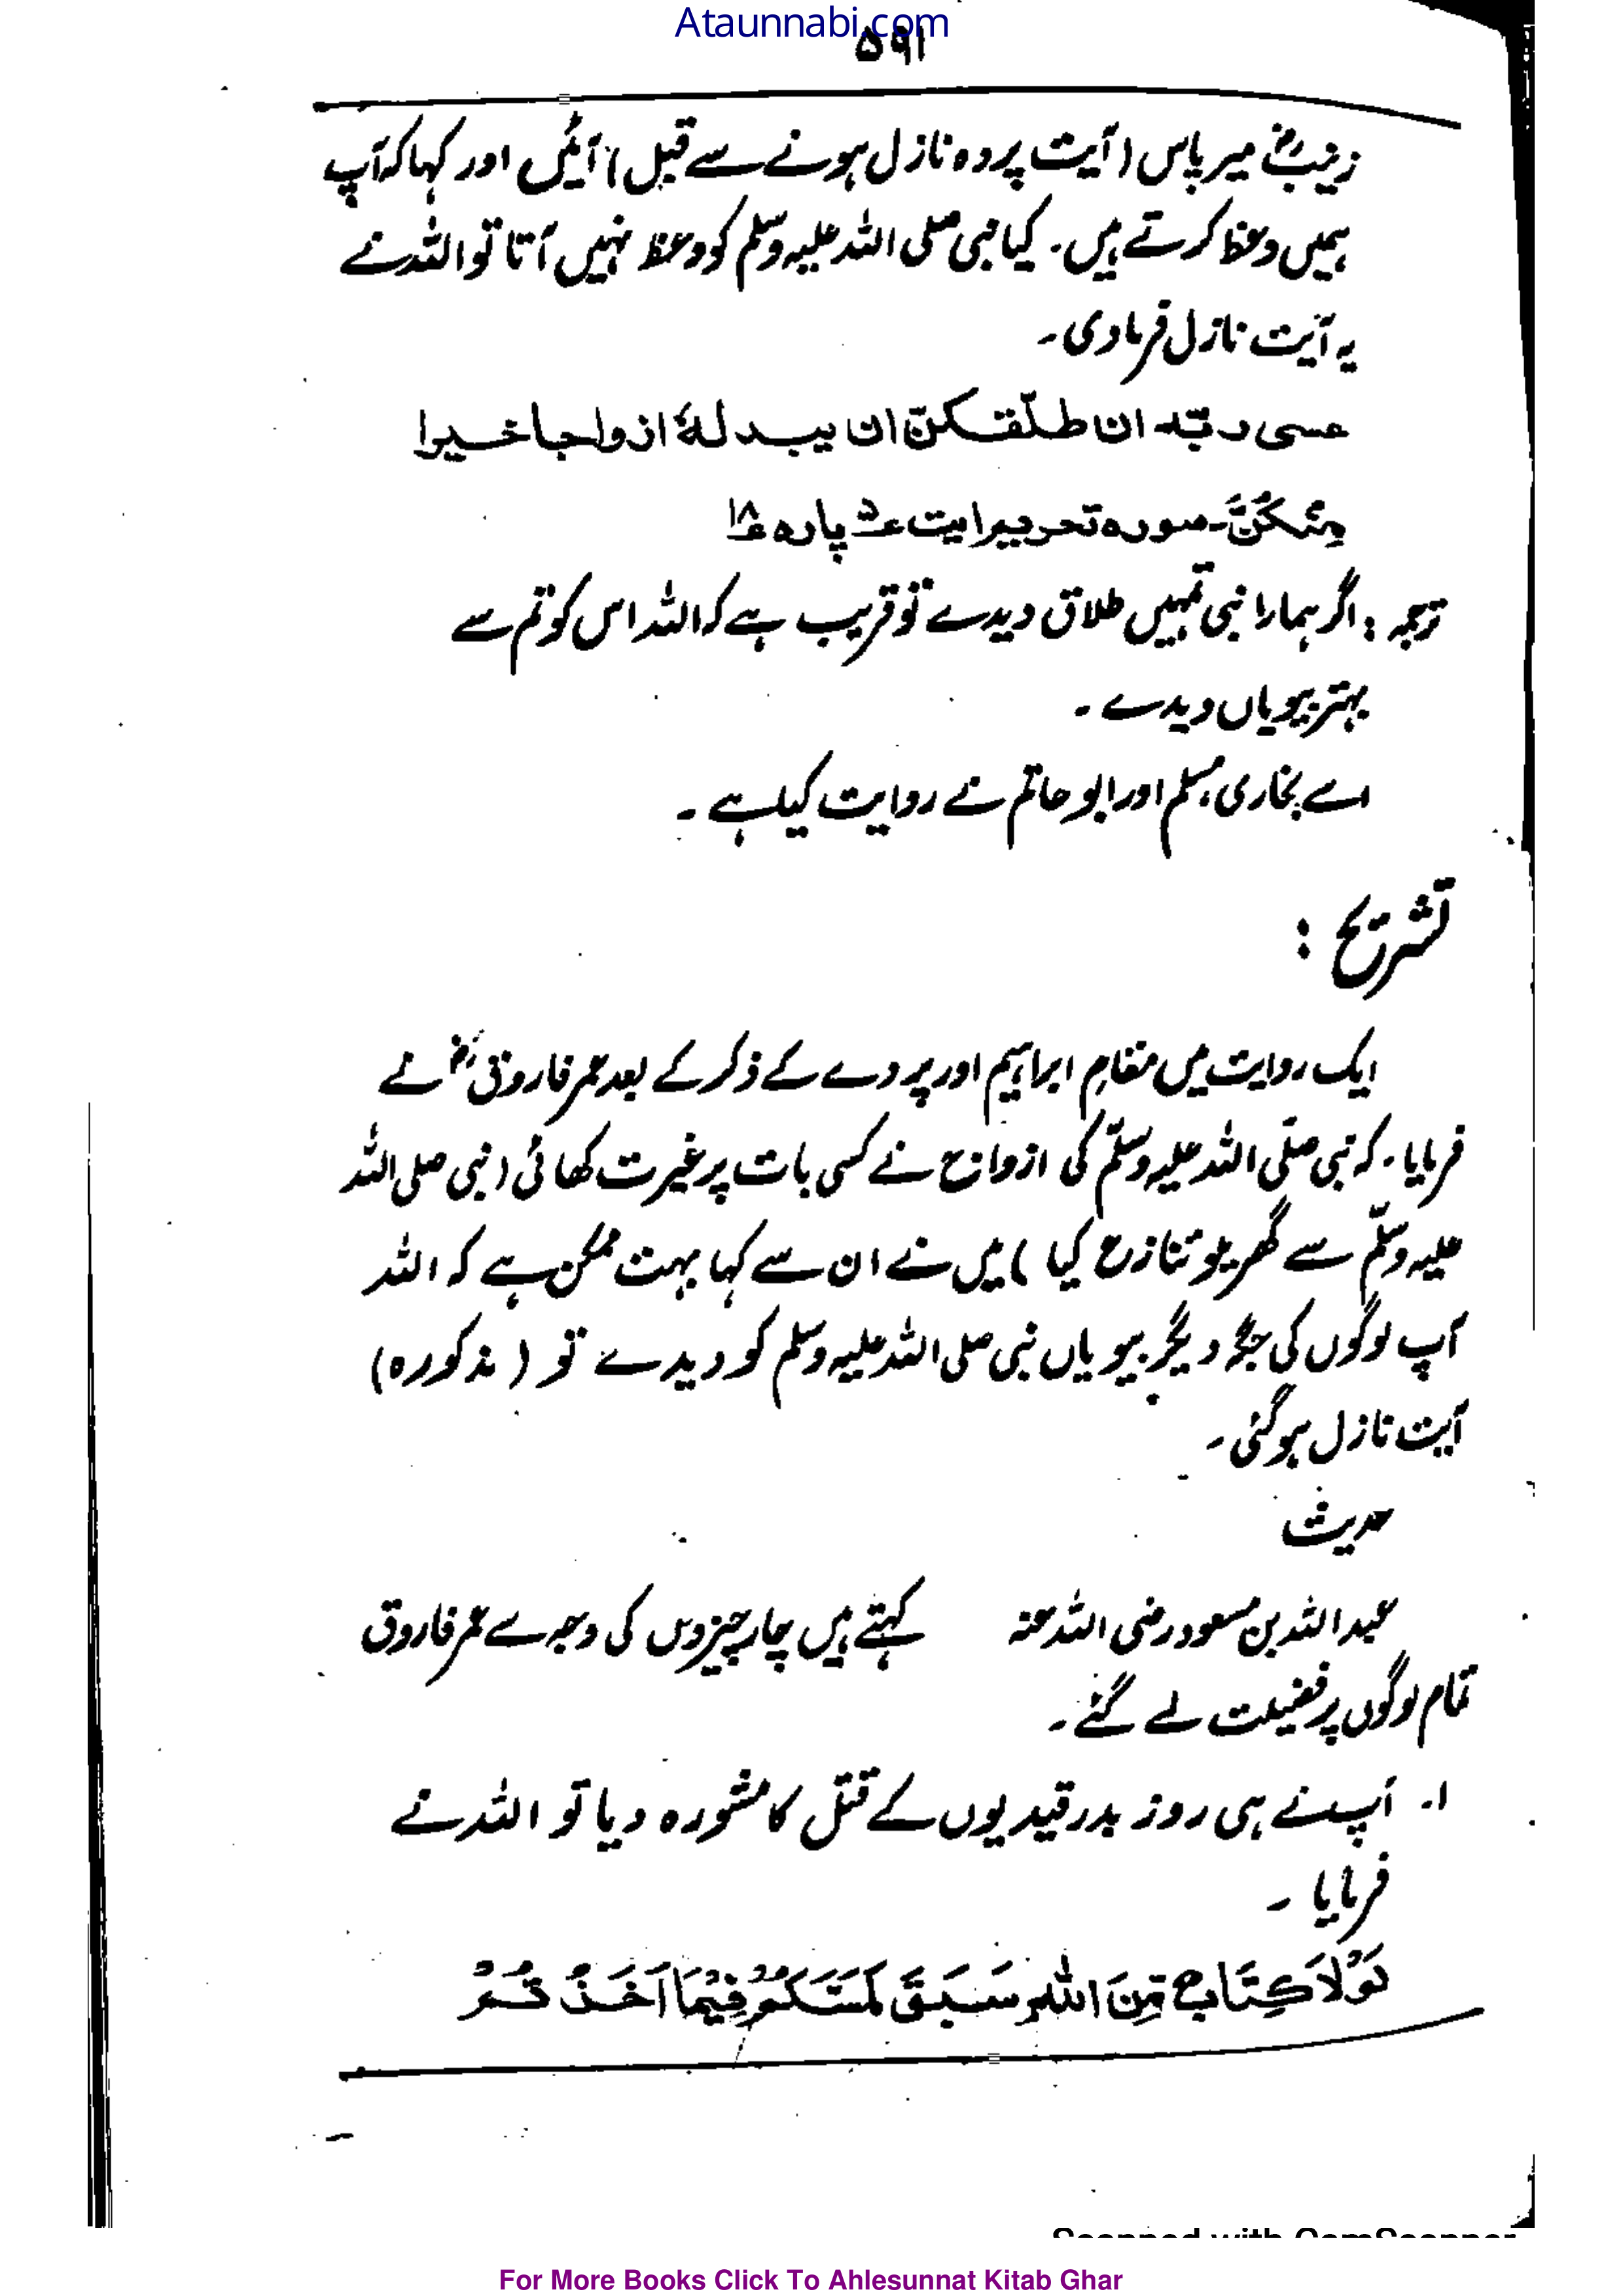 Ataunnabi.com
۵۹۱
زینبؓ میر پاس (آیت پردہ نازل ہونے سے قبل) آئیں اور کہا کہ آپ
ہمیں وعظ کرتے ہیں۔ کیا نبی صلی اللہ علیہ وسلم کو وعظ نہیں آتا تو اللہ نے
یہ آیت نازل فرمادی۔
عسی ربّہ ان طلّقکنّ ان یبدلہٗ ازواجا خیرا
مِنْکُنَّ۔ سورہ تحریم ایت ۵ پارہ ۱۸
ترجمہ : اگر ہمارا نبی تمہیں طلاق دیدے تو قریب ہے کہ اللہ اس کو تم سے
بہتر بیویاں دیدے ۔
اسے بخاری، مسلم اور ابو حاتم نے روایت کیا ہے ۔
تشریح :
ایک روایت میں مقامِ ابراہیم اور پردے کے ذکر کے بعد عمر فاروقؓ نے
فرمایا۔ کہ نبی صلّی اللہ علیہ وسلّم کی ازواج نے کسی بات پر غیرت کھائی (نبی صلی اللہ
علیہ وسلّم سے گھریلو تنازع کیا) میں نے ان سے کہا بہت ممکن ہے کہ اللہ
آپ لوگوں کی جگہ دیگر بیویاں نبی صلی اللہ علیہ وسلم کو دیدے تو (مذکورہ)
آیت نازل ہوگئی ۔
حدیث
عبداللہ بن مسعود رضی اللہ عنہ کہتے ہیں چار چیزوں کی وجہ سے عمر فاروق
تمام لوگوں پر فضیلت لے گئے ۔
۱۔ آپ نے ہی روز بدر قیدیوں کے قتل کا مشورہ دیا تو اللہ نے
فرمایا ۔
لَوْلَا کِتَابٌ مِّنَ اللّٰہِ سَبَقَ لَمَسَّکُمْ فِیْمَا اَخَذْتُمْ
Scanned with CamScanner
For More Books Click To Ahlesunnat Kitab Ghar